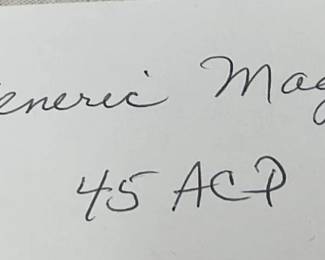 eneric Mag
45 ACP